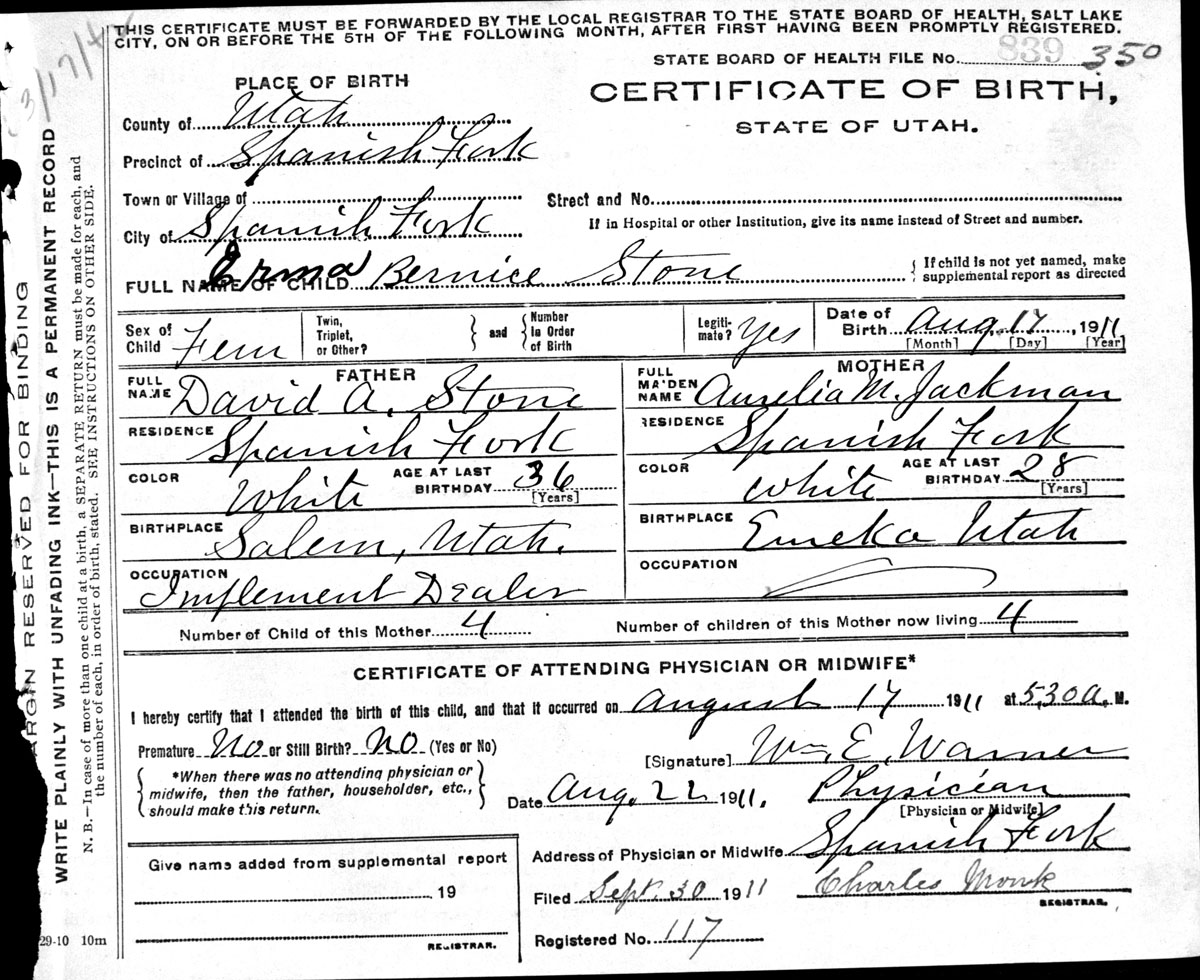 THIS CERTIFICATE MUST BE FORWARDED BY THE LOCAL REGISTRAR TO THE STATE BOARD OF HEALTH, SALT LAKE
CITY, ON OR BEFORE THE 5TH OF THE FOLLOWING MONTH, AFTER FIRST HAVING BEEN PROMPTLY REGISTERED.
STATE BOARD OF HEALTH FILE No. 839 350
PLACE OF BIRTH
CERTIFICATE OF BIRTH,
STATE OF UTAH.
County of Utah
Precinct of Spanish Fork
Town or Village of
Street and No.
If in Hospital or other Institution, give its name instead of Street and number.
City of Spanish Fork
FULL NAME OF CHILD Erma Bernice Stone
{ If child is not yet named, make
supplemental report as directed
Sex of Child Fem
Twin, Triplet, or Other?
and
Number In Order of Birth
Legiti-mate? Yes
Date of Birth Aug. 17, 1911
[Month] [Day] [Year]
FATHER
FULL NAME David A. Stone
RESIDENCE Spanish Fork
COLOR White
AGE AT LAST BIRTHDAY 36
[Years]
BIRTHPLACE Salem, Utah.
OCCUPATION Implement Dealer
MOTHER
FULL MAIDEN NAME Aurelia M. Jackman
RESIDENCE Spanish Fork
COLOR White
AGE AT LAST BIRTHDAY 28
[Years]
BIRTHPLACE Eureka Utah
OCCUPATION
Number of Child of this Mother 4
Number of children of this Mother now living 4
CERTIFICATE OF ATTENDING PHYSICIAN OR MIDWIFE*
I hereby certify that I attended the birth of this child, and that it occurred on August 17 1911 at 5.30 a. M.
Premature No or Still Birth? No (Yes or No)
[Signature] Wm. E. Warner
{ *When there was no attending physician or
midwife, then the father, householder, etc.,
should make this return. }
Date Aug. 22 1911. Physician
[Physician or Midwife]
Address of Physician or Midwife Spanish Fork
Give name added from supplemental report
19
REGISTRAR.
Filed Sept. 30 1911 Charles Monk
REGISTRAR.
Registered No. 117
29-10 10m
MARGIN RESERVED FOR BINDING
WRITE PLAINLY WITH UNFADING INK—THIS IS A PERMANENT RECORD
N. B.—In case of more than one child at a birth, a SEPARATE RETURN must be made for each, and
the number of each, in order of birth, stated. SEE INSTRUCTIONS ON OTHER SIDE.